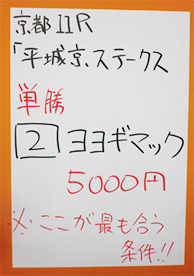 京都11R
「平城京ステークス
単勝
2 ヨヨギマック
5000円
※ここが最も合う
条件!!